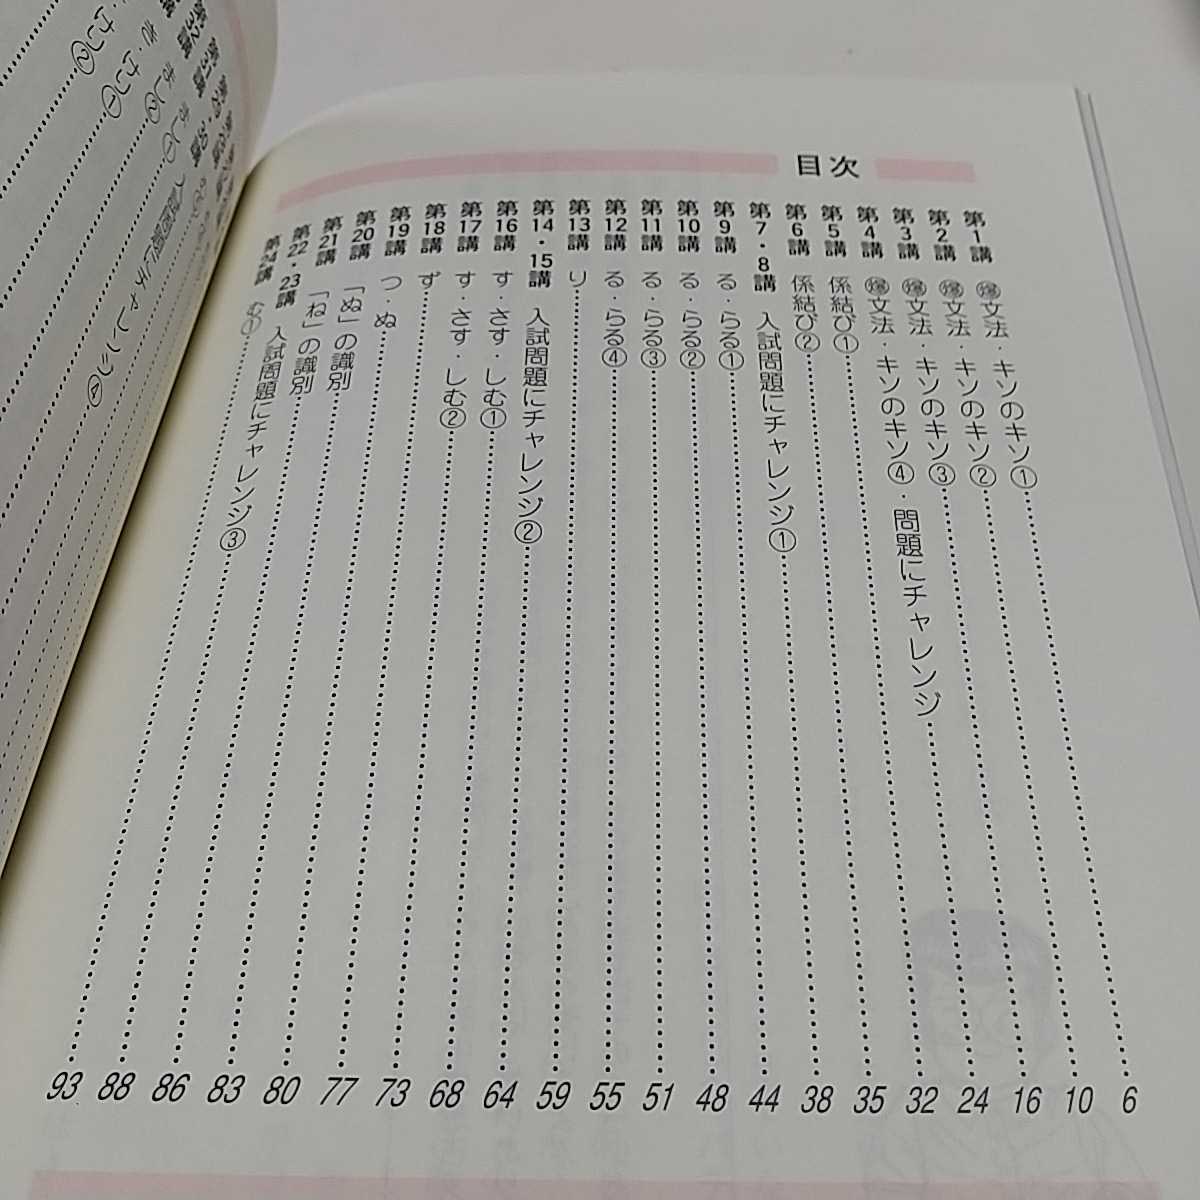 目次
第1講 爆文法・キソのキソ①……6
第2講 爆文法・キソのキソ②……10
第3講 爆文法・キソのキソ③……16
第4講 爆文法・キソのキソ④・問題にチャレンジ……24
第5講 係結び①……32
第6講 係結び②……35
第7・8講 入試問題にチャレンジ①……38
第9講 る・らる①……44
第10講 る・らる②……48
第11講 る・らる③……51
第12講 る・らる④……55
第13講 り……59
第14・15講 入試問題にチャレンジ②……64
第16講 す・さす・しむ①……68
第17講 す・さす・しむ②……73
第18講 ず……77
第19講 つ・ぬ……80
第20講 「ぬ」の識別……83
第21講 「ね」の識別……86
第22・23講 入試問題にチャレンジ③……88
第24講 む①……93
入試問題にチャレンジ④